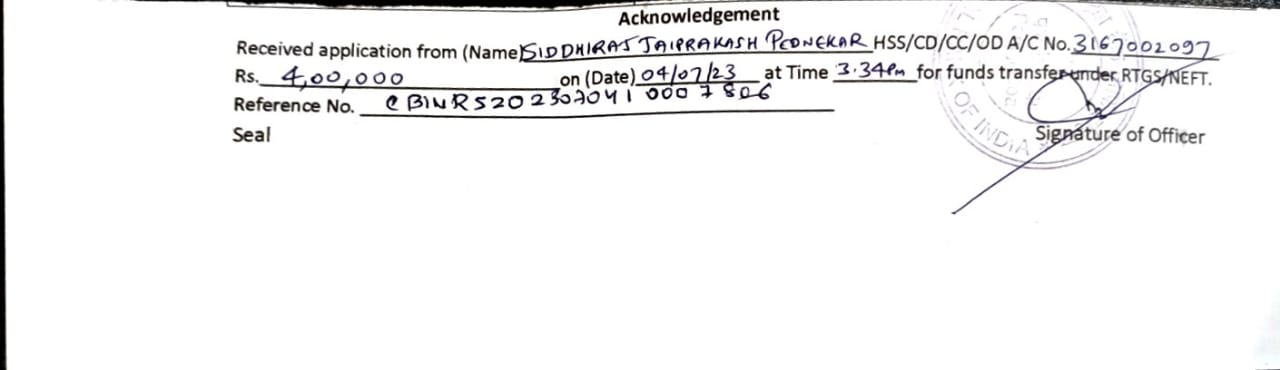 Acknowledgement
Received application from (Name) SIDDHIRAJ JAIPRAKASH PEDNEKAR HSS/CD/CC/OD A/C No. 3167002097
Rs. 4,00,000 on (Date) 04/07/23 at Time 3.34 Pm for funds transfer under RTGS/NEFT.
Reference No. CBINR52023070410007806
Seal Signature of Officer
OF INDIA